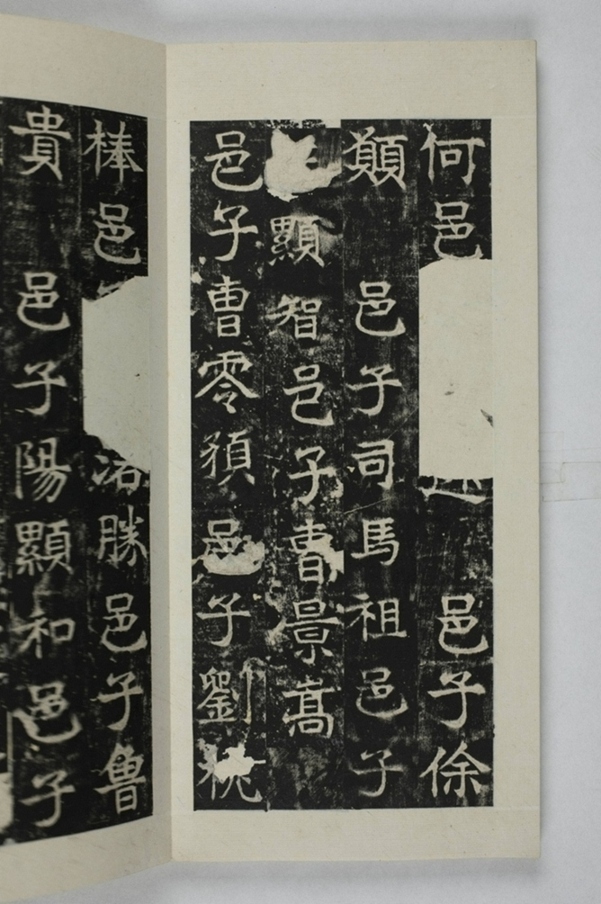 何邑
邑子徐
願 邑子司馬祖邑子
顯智邑子曺景嵩
邑子曺零須邑子劉
棒邑
洛勝邑子魯
貴 邑子陽顯和邑子